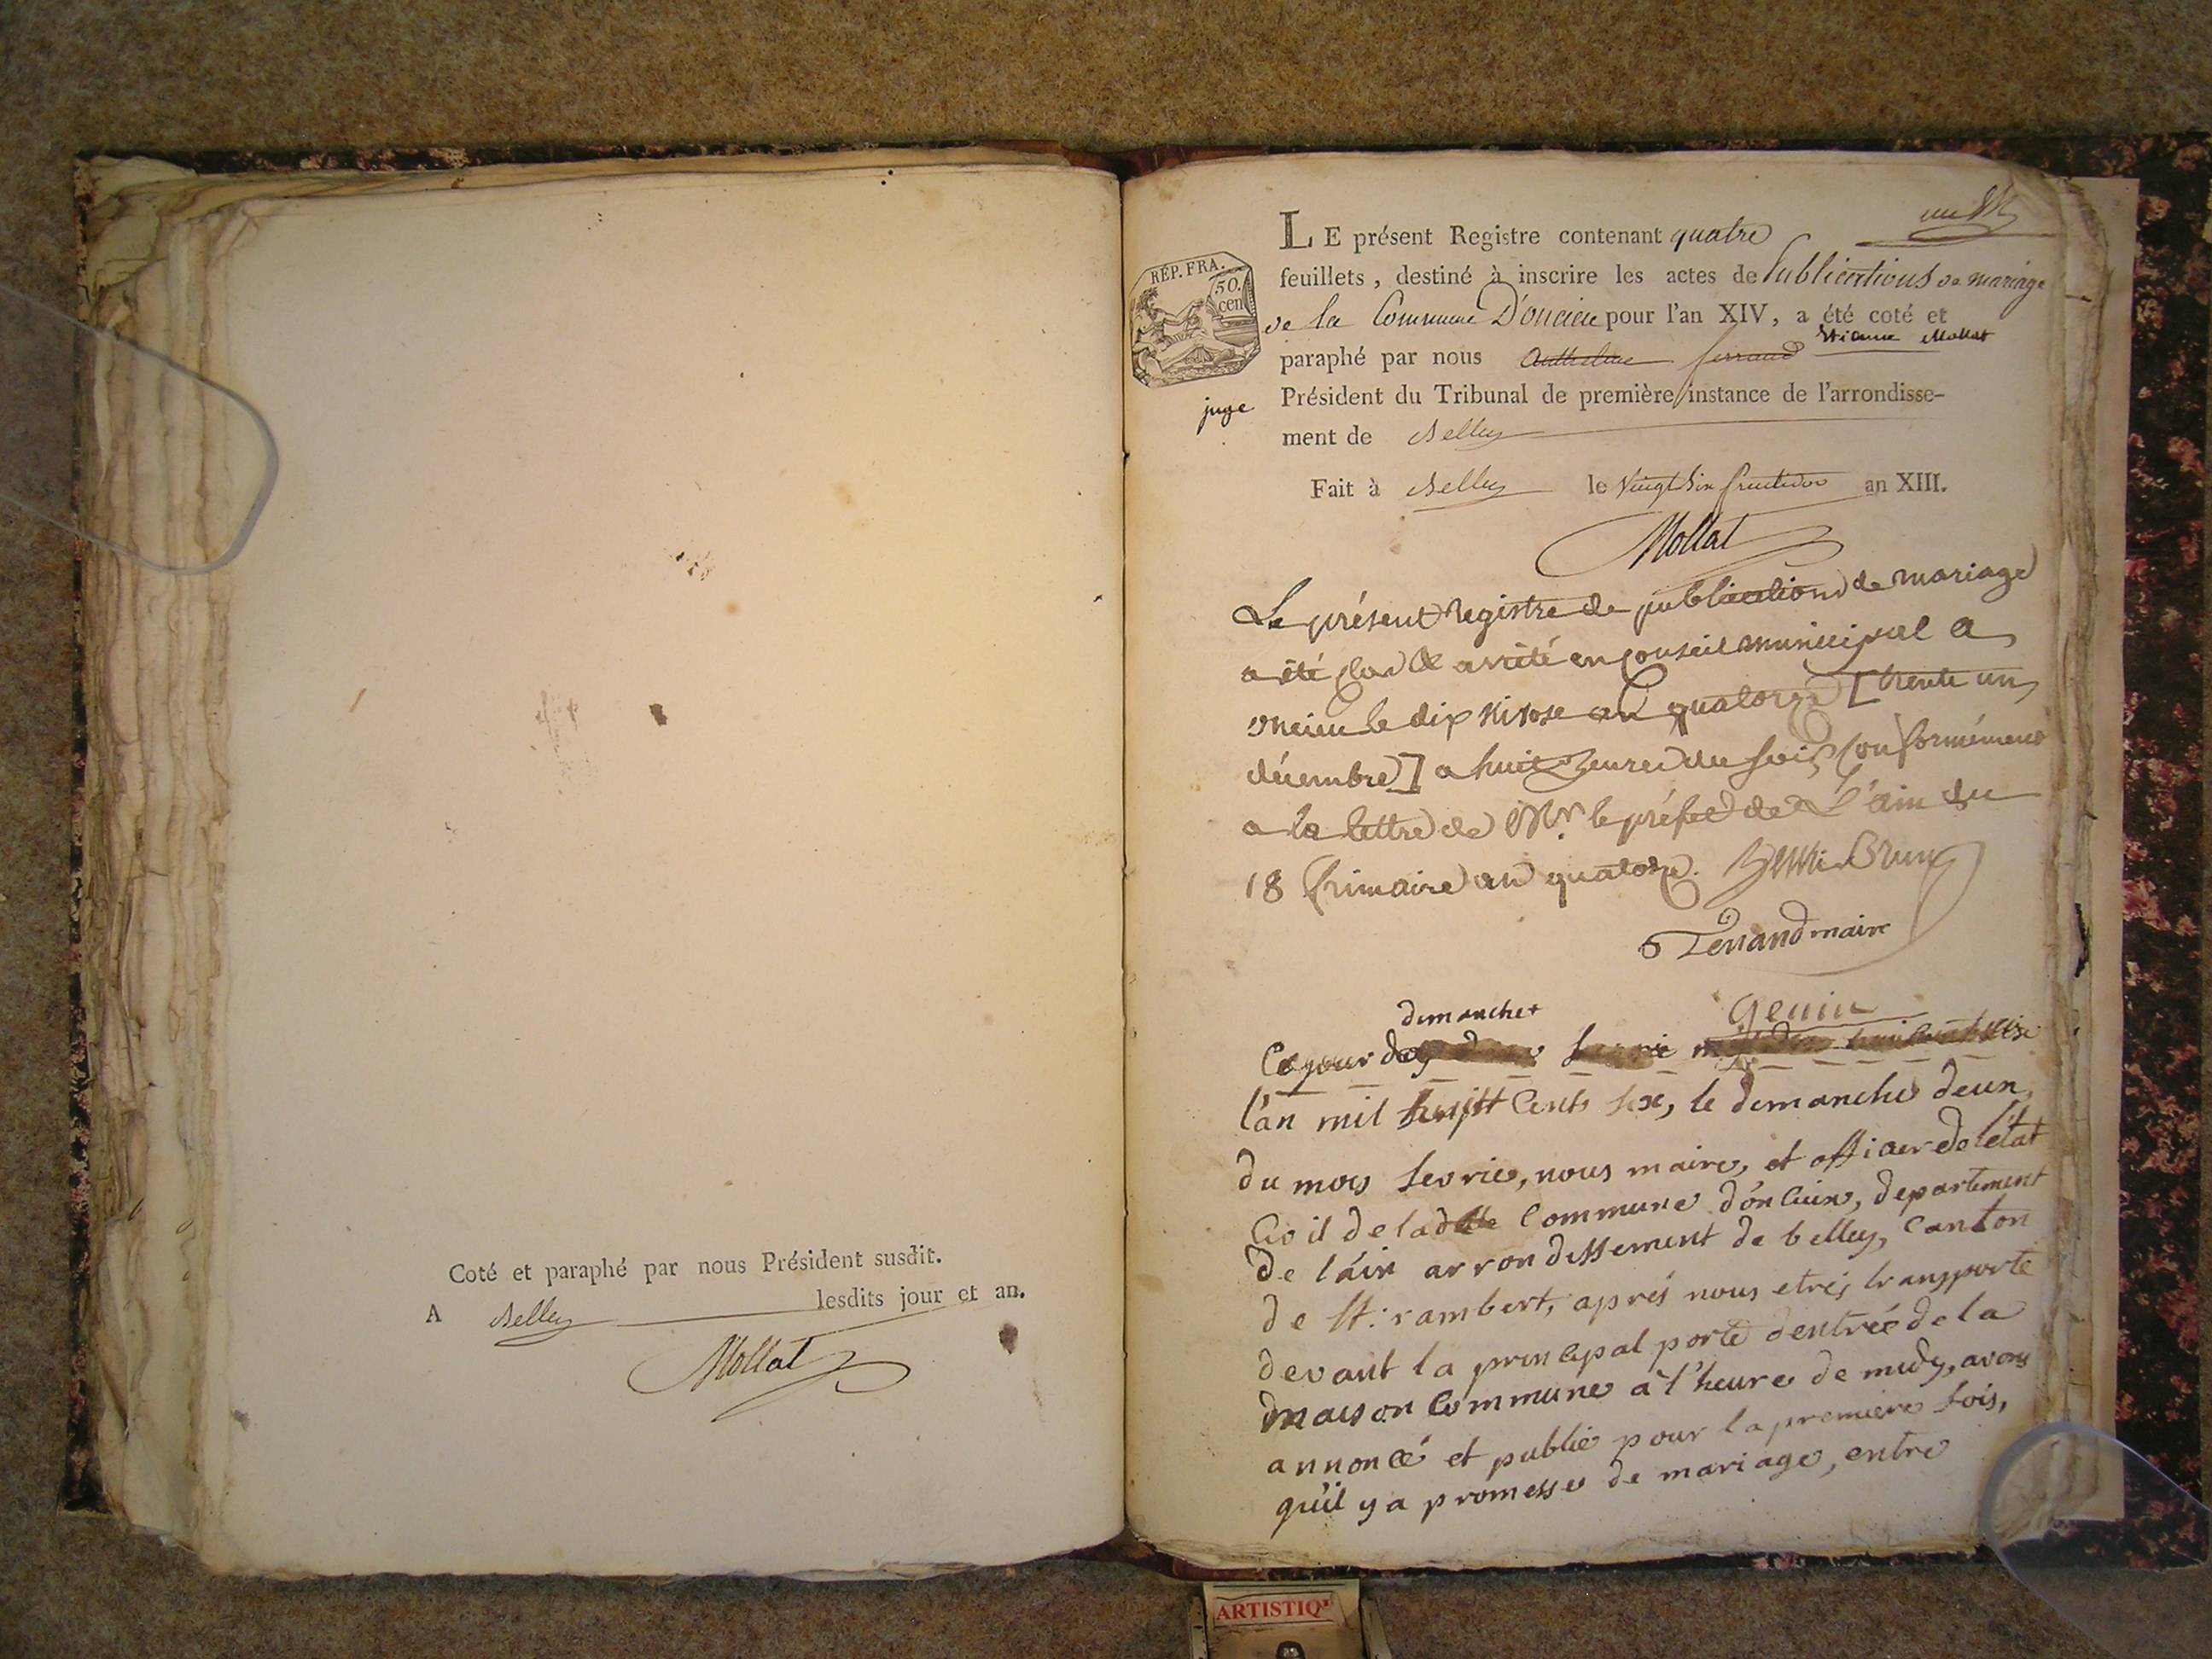 Coté et paraphé par nous Président susdit.
A Belley lesdits jour et an.
Mollat
un
LE présent Registre contenant quatre
feuillets, destiné à inscrire les actes de Publications de mariage
de la Commune D'oncieu pour l'an XIV, a été coté et
Etienne Mollat
paraphé par nous Anthelme ferrand
juge
Président du Tribunal de première instance de l'arrondisse-
ment de Belley
Fait à Belley le Vingt Six fructidor an XIII.
RÉP. FRA.
50.
cen
Mollat
Le présent Registre de publication de mariage
a été clos & arrêté en conseil municipal a
oncieu le dix nivose an quatorze [trente un
décembre] a huit heures du soir, conformément
a la lettre de Mr. le préfet de L'ain du
18 frimaire an quatorze. Brun
Tenand maire
demanche+
genin
Ce jour
l'an mil huit Cents six, le demanche deun
du mois fevrie, nous maire, et officier de l'état
Civil de la Commune d'onCuin, departement
de l'áin arrondissement de belley, Canton
de St: rambert, aprés nous etres transporte
devant la principal porte dentrée de la
maison Commune à l'heure de midy, avons
annoncé et publié pour la premiere fois,
qu'il y a promesse de mariage, entre
ARTISTIQ